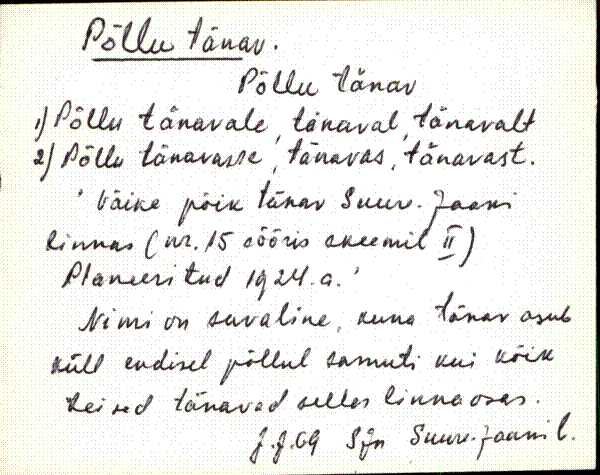 Põllu tänav.
Põllu tänav
1) Põllu tänavale, tänaval, tänavalt
2) Põllu tänavasse, tänavas, tänavast.
' Väike põik tänav Suure-Jaani
linnas (nr. 15 sõõris skeemil II)
Planeeritud 1924.a.'
Nimi on suvaline, kuna tänav asub
küll endisel põllul samuti kui kõik
teised tänavad selles linnaosas.
J.J. 69 SJn Suure-Jaani l.